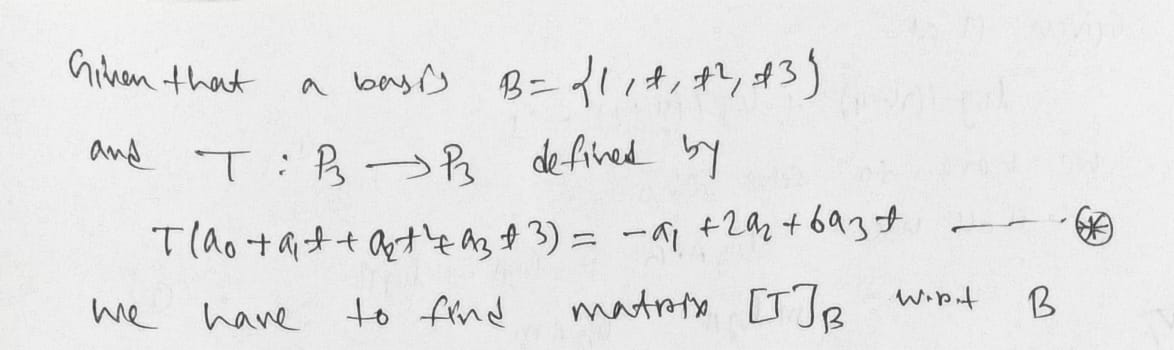 Given that a basis B = {1, t, t², t3}
and T : P₃ → P₃ defined by
T(a₀ + a₁t + a₂t² + a₃t3) = -a₁ + 2a₂ + 6a₃t — ⊛
we have to find matrix [T]_B w.r.t B